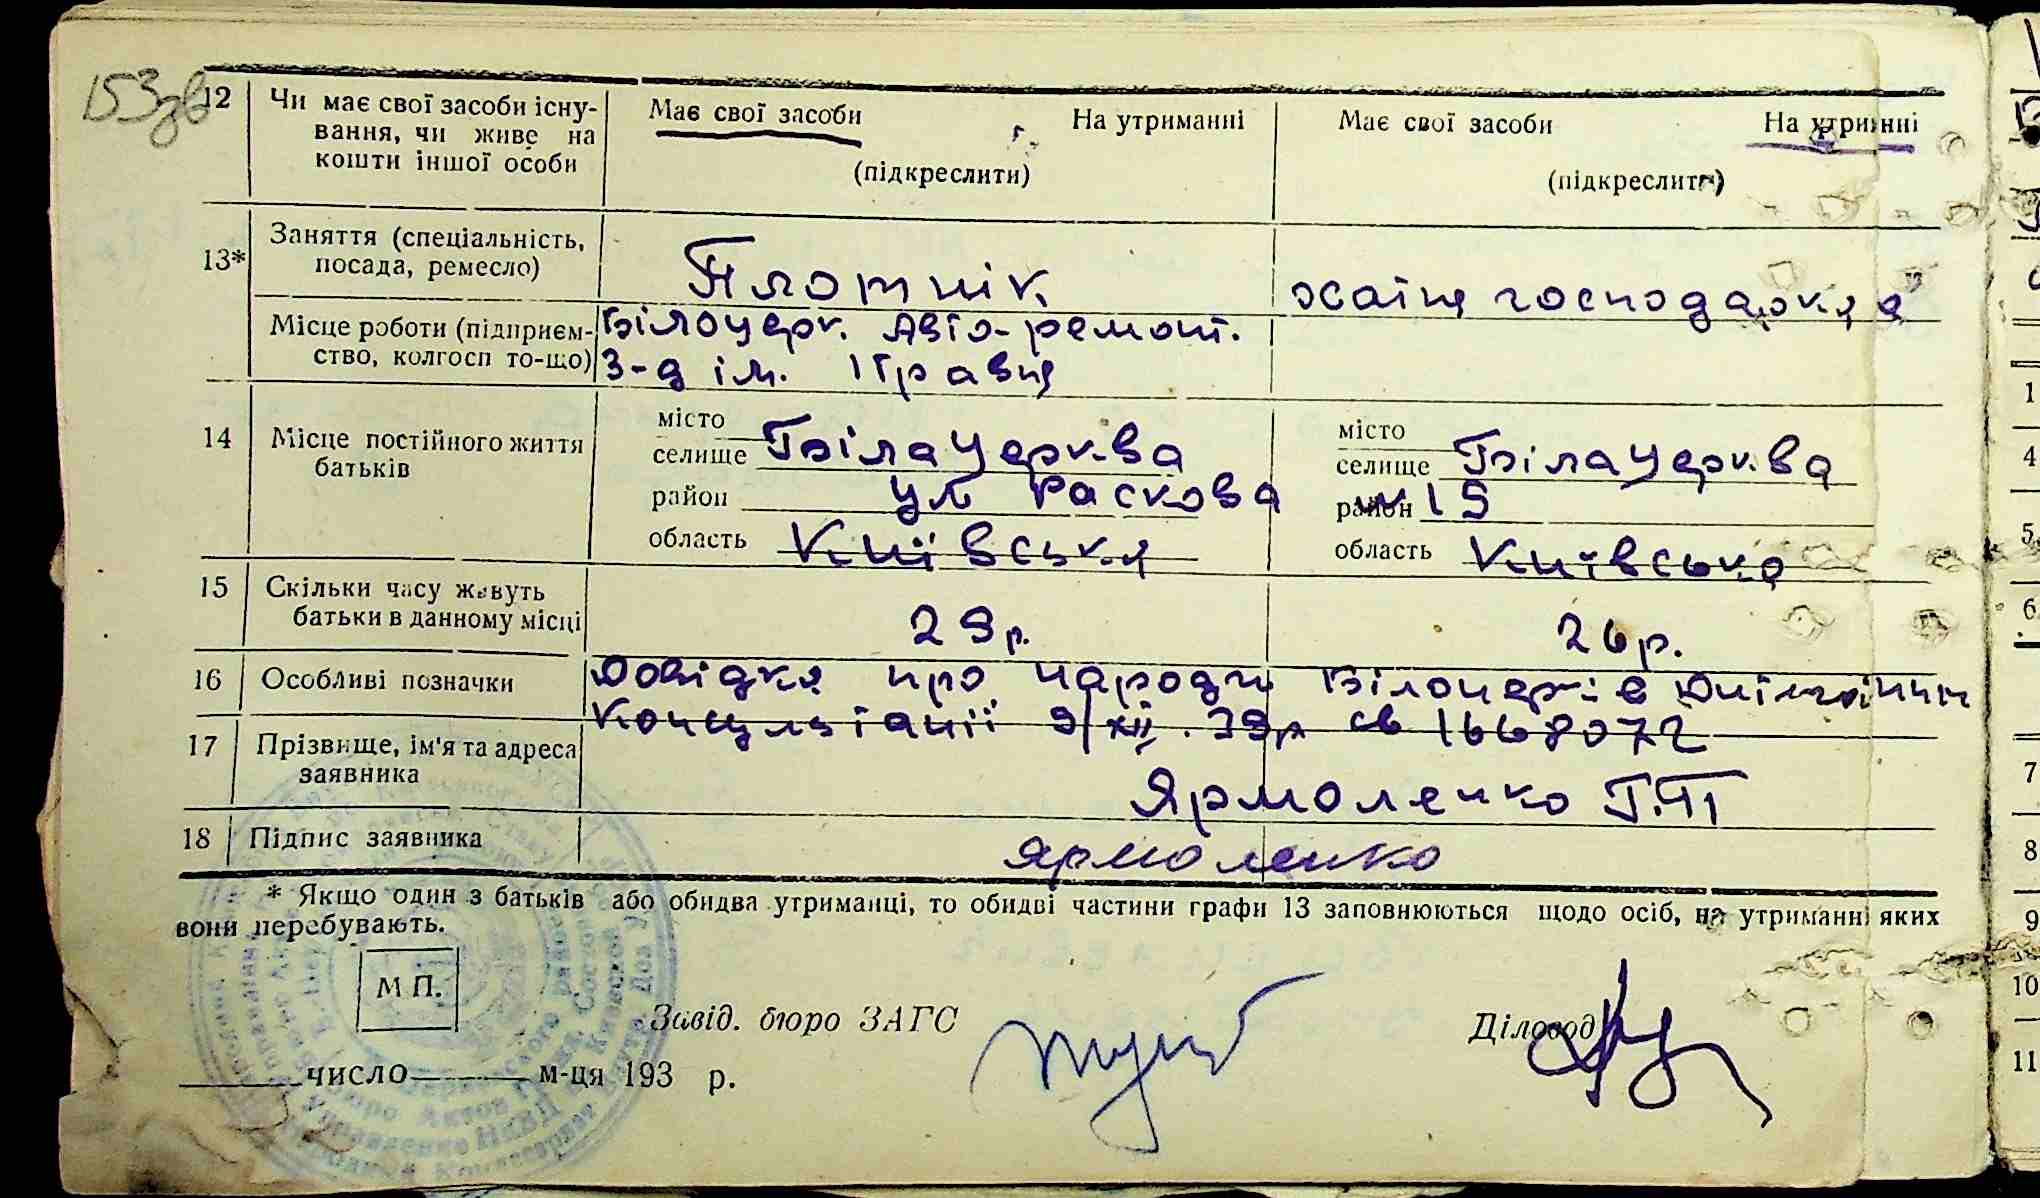 153зв
12 Чи має свої засоби існу-
вання, чи живе на
кошти іншої особи
Має свої засоби На утриманні
(підкреслити)
Має свої засоби На утриманні
(підкреслити)
13* Заняття (спеціальність,
посада, ремесло)
Плотнік
хатня господарка
Місце роботи (підприєм-
ство, колгосп то-що)
Білоцерк. Авто-ремонт.
З-д ім.
14 Місце постійного життя
батьків
місто
селище Біла Церква
район ул Раскова
область Київська
місто
селище Біла Церква
район № 19
область Київська
15 Скільки часу живуть
батьки в данному місці
29 р.
26 р.
16 Особливі позначки
Довідка про народж Білоцерків
Консультації 9/XII. 39р св 1668072
17 Прізвище, ім'я та адреса
заявника
Ярмоленко Г.П
18 Підпис заявника
Ярмоленко
* Якщо один з батьків або обидва утриманці, то обидві частини графи 13 заповнюються щодо осіб, на утриманні яких
вони перебувають.
М П.
Завід. бюро ЗАГС
Діловод
число м-ця 193 р.